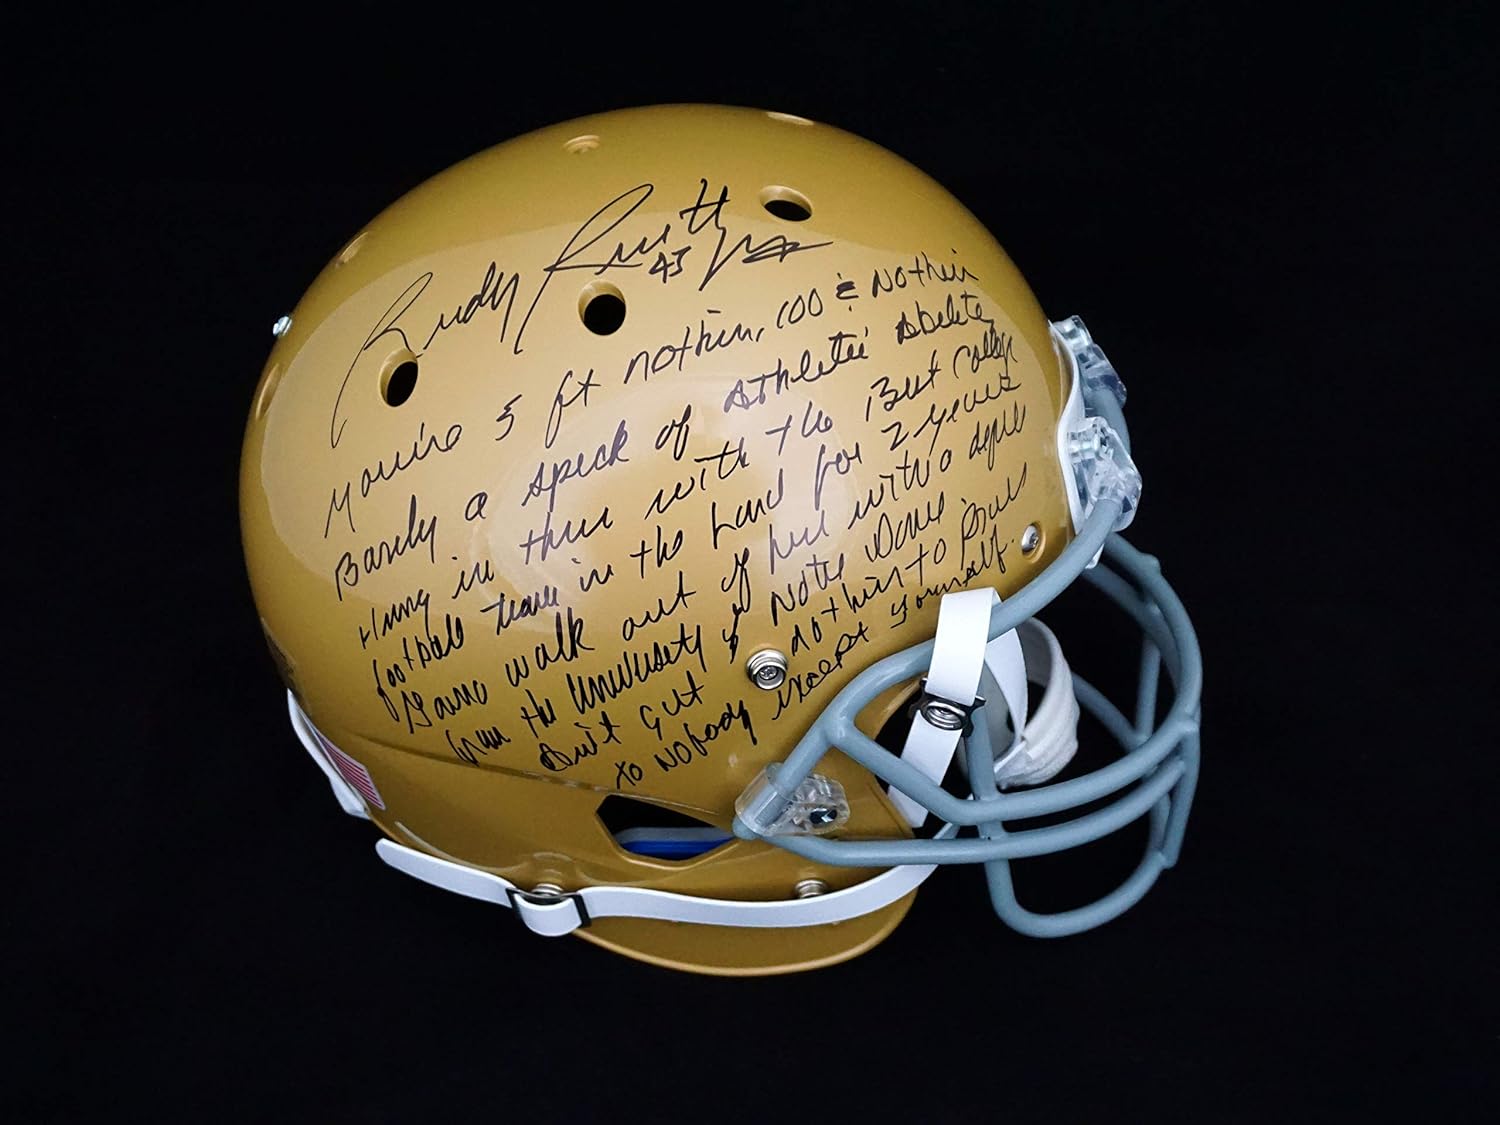 Rudy Ruettiger
43
You're 5 ft nothin, 100 & nothin
Barely a speck of Athletic Ability
Hung in there with the Best College
football team in the land for 2 years
Gonna walk out of here with a degree
from the University of Notre Dame
Ain't Gut nothin to Prove
to Nobody except yourself.